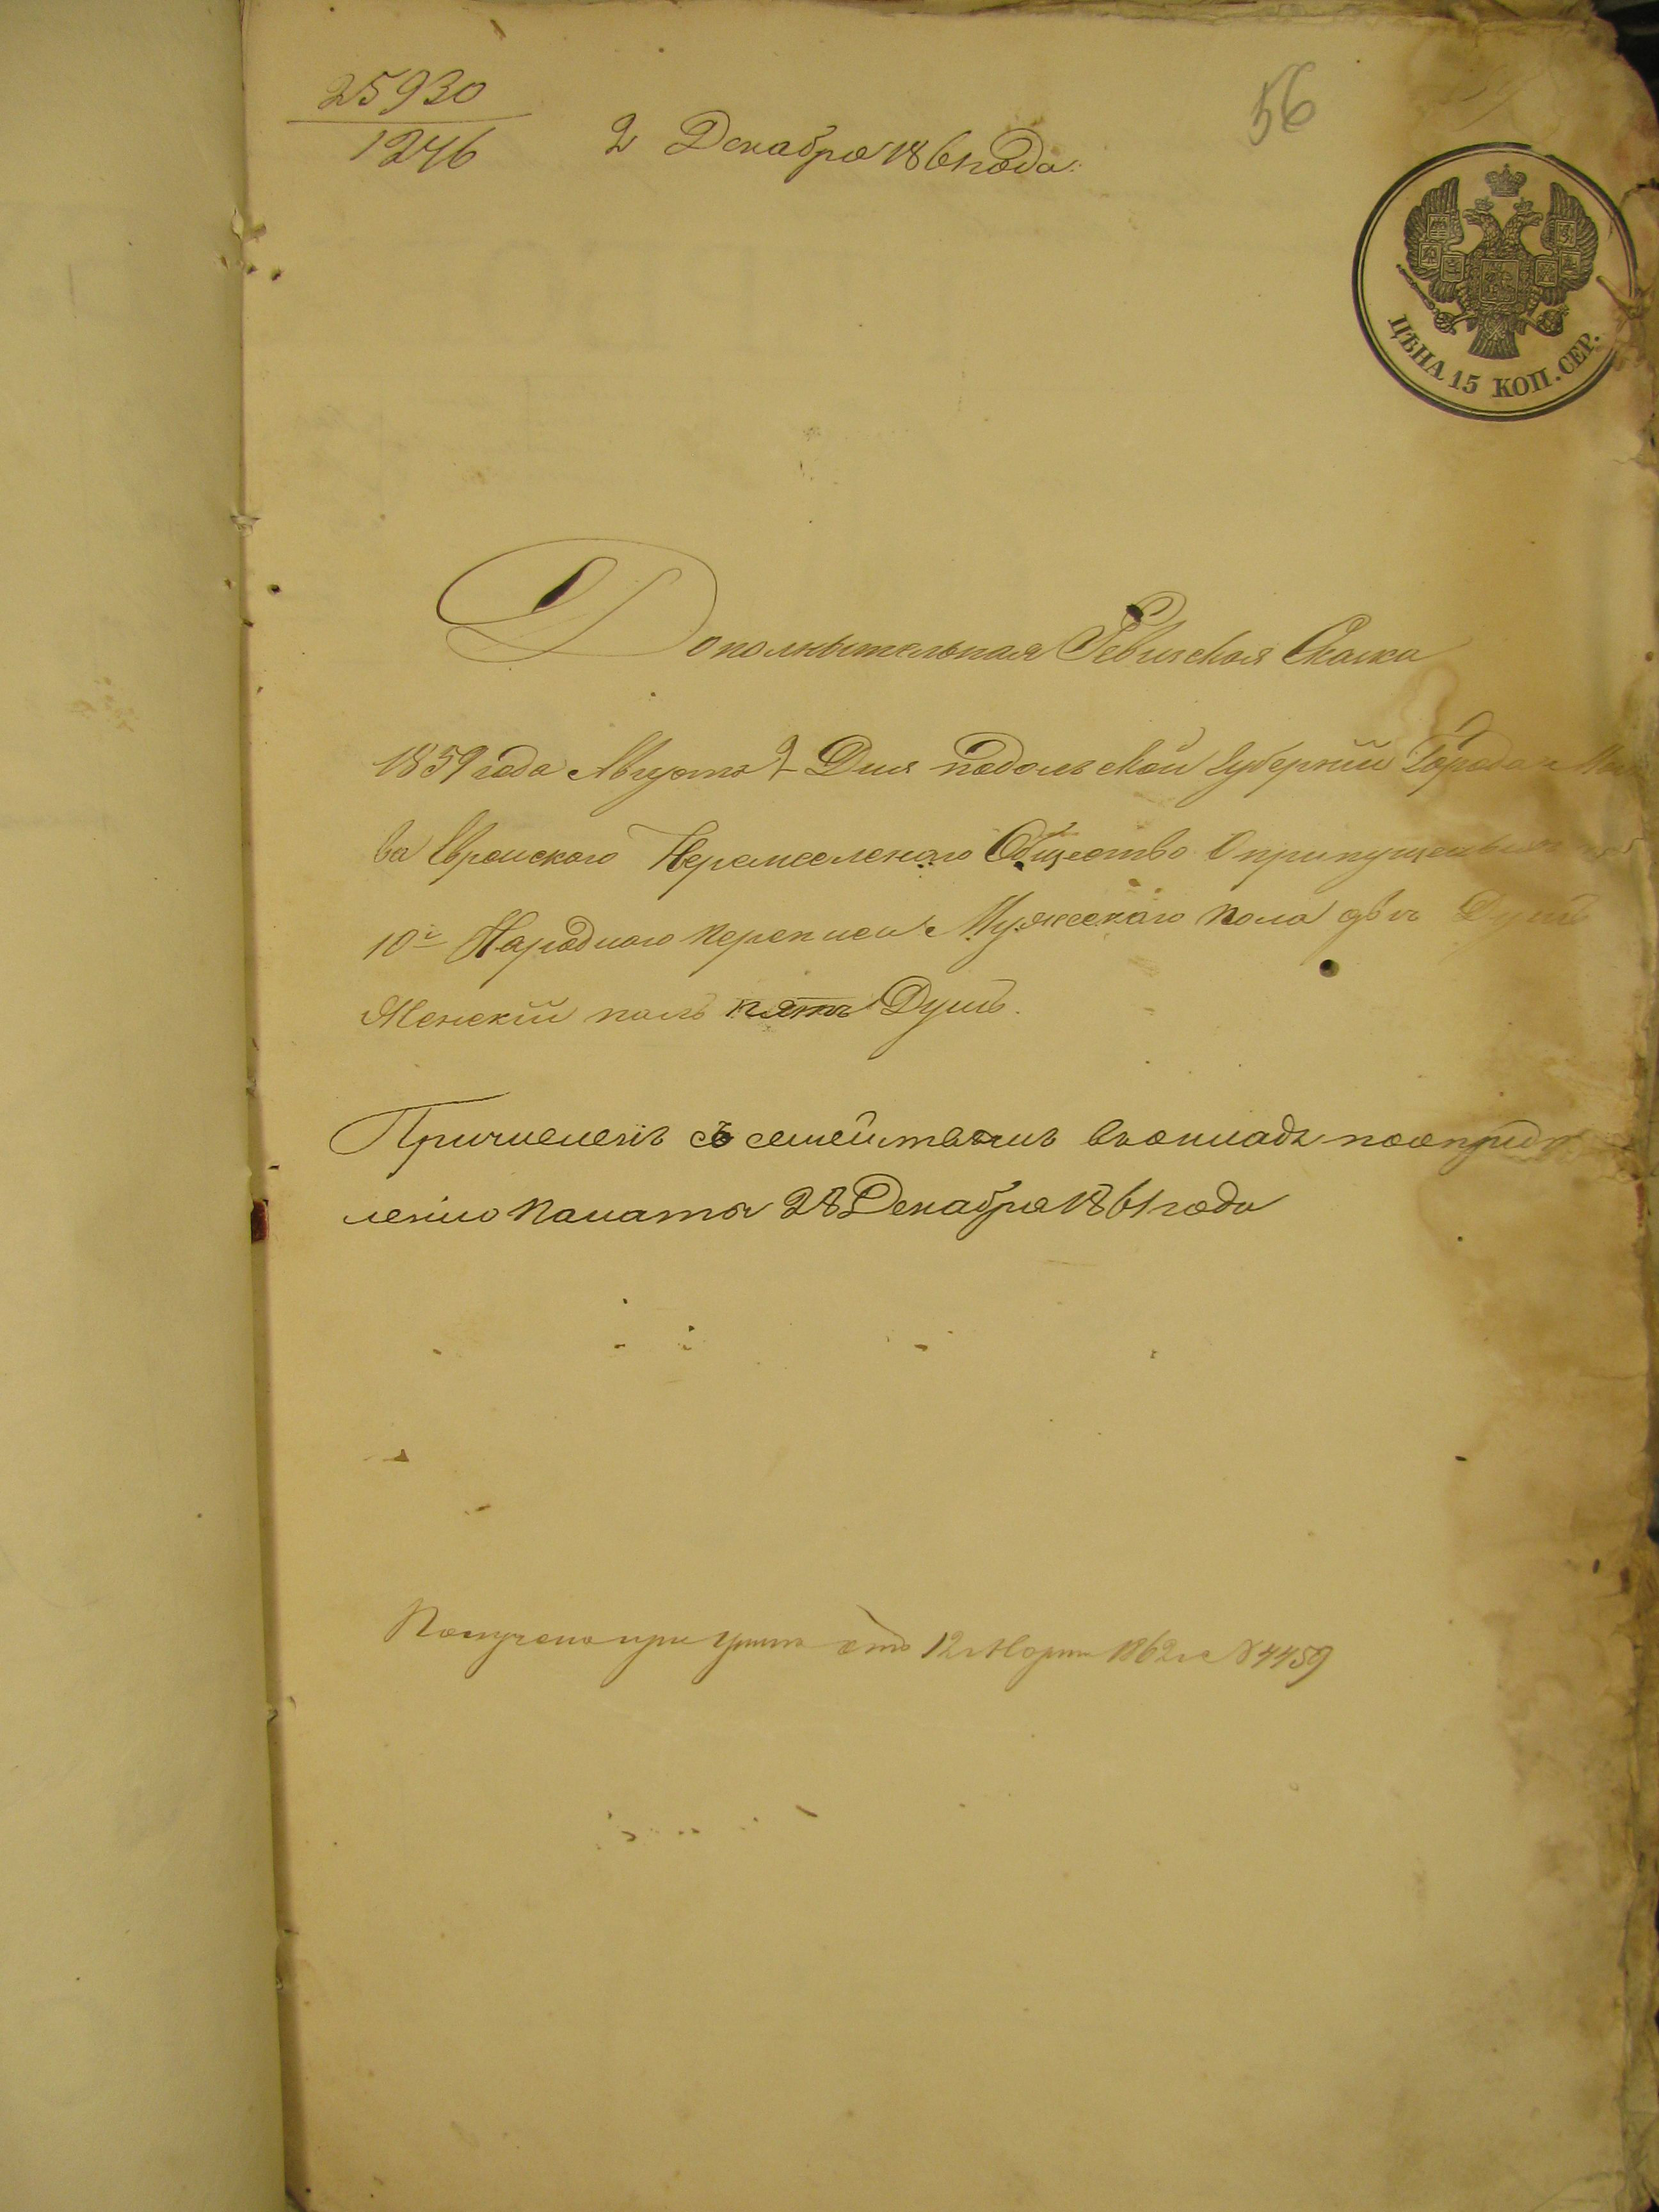 25930
1246
2 Декабря 1861 года.
56
ЦѢНА 15 КОП. СЕР.
Дополнытельная Ревиская Скаска
1859 года Августа 2 Дня подольской Губернии Города
ва Евреиского Общество О припущеных
10й Народного переписи Мужескаго пола двѣ Душѣ
Женскій полъ пять Душъ.
Причисленъ съ семействомъ въ окладъ по
лению палаты 28 Декабря 1861 года
Получено при указѣ отъ 12 Марта 1862 г № 4459